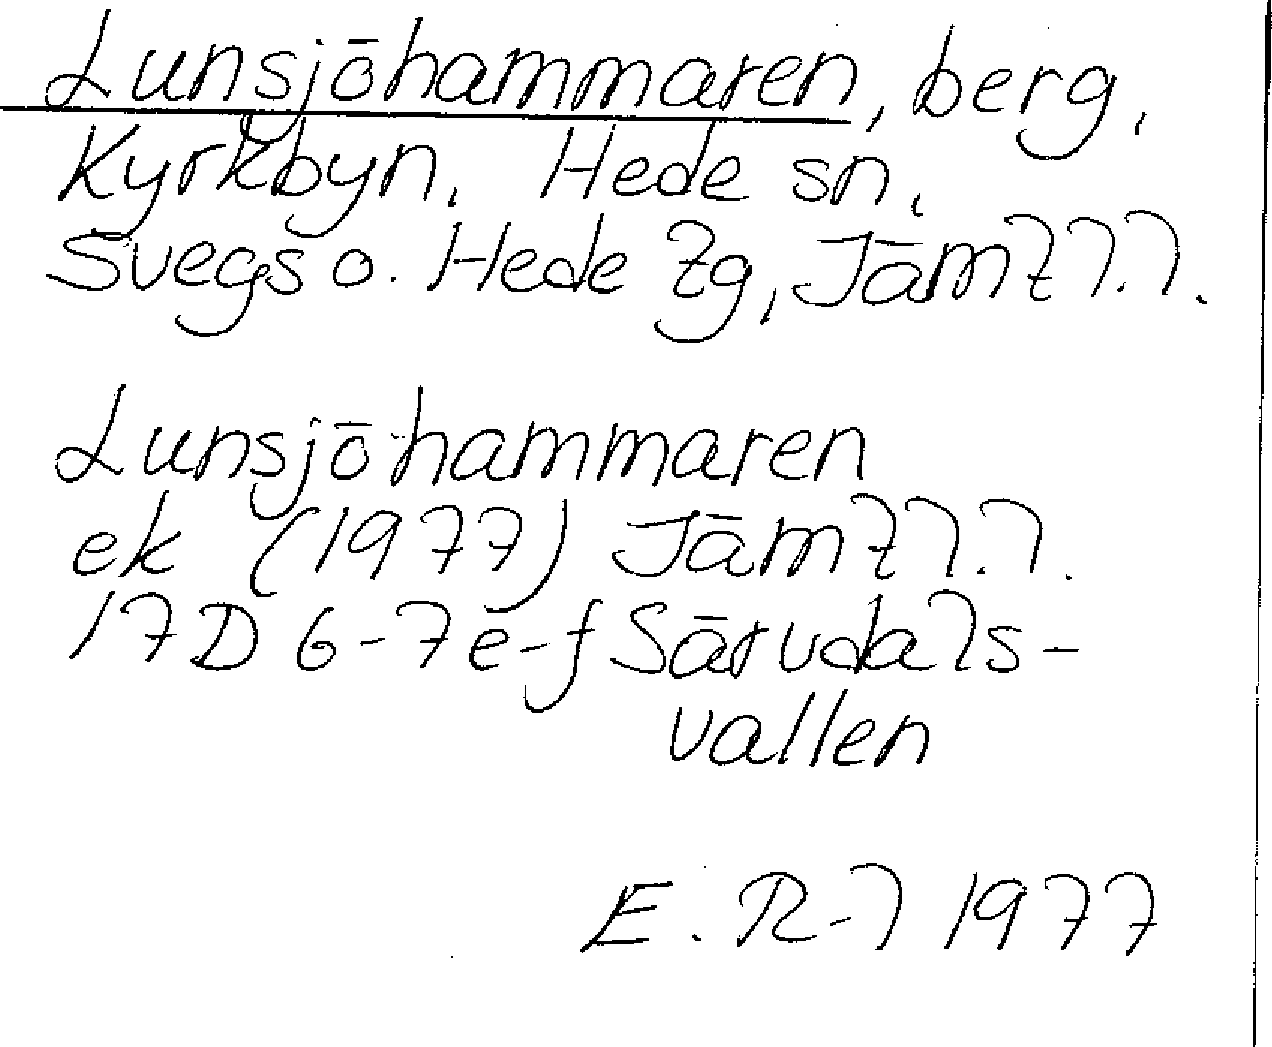 Lunsjöhammaren, berg,
Kyrkbyn, Hede sn,
Svegs o. Hede tg, Jämtl.l.
Lunsjöhammaren
ek (1977) Jämtl.l.
17D 6-7e-f Särvdals-
vallen
E. R-l 1977